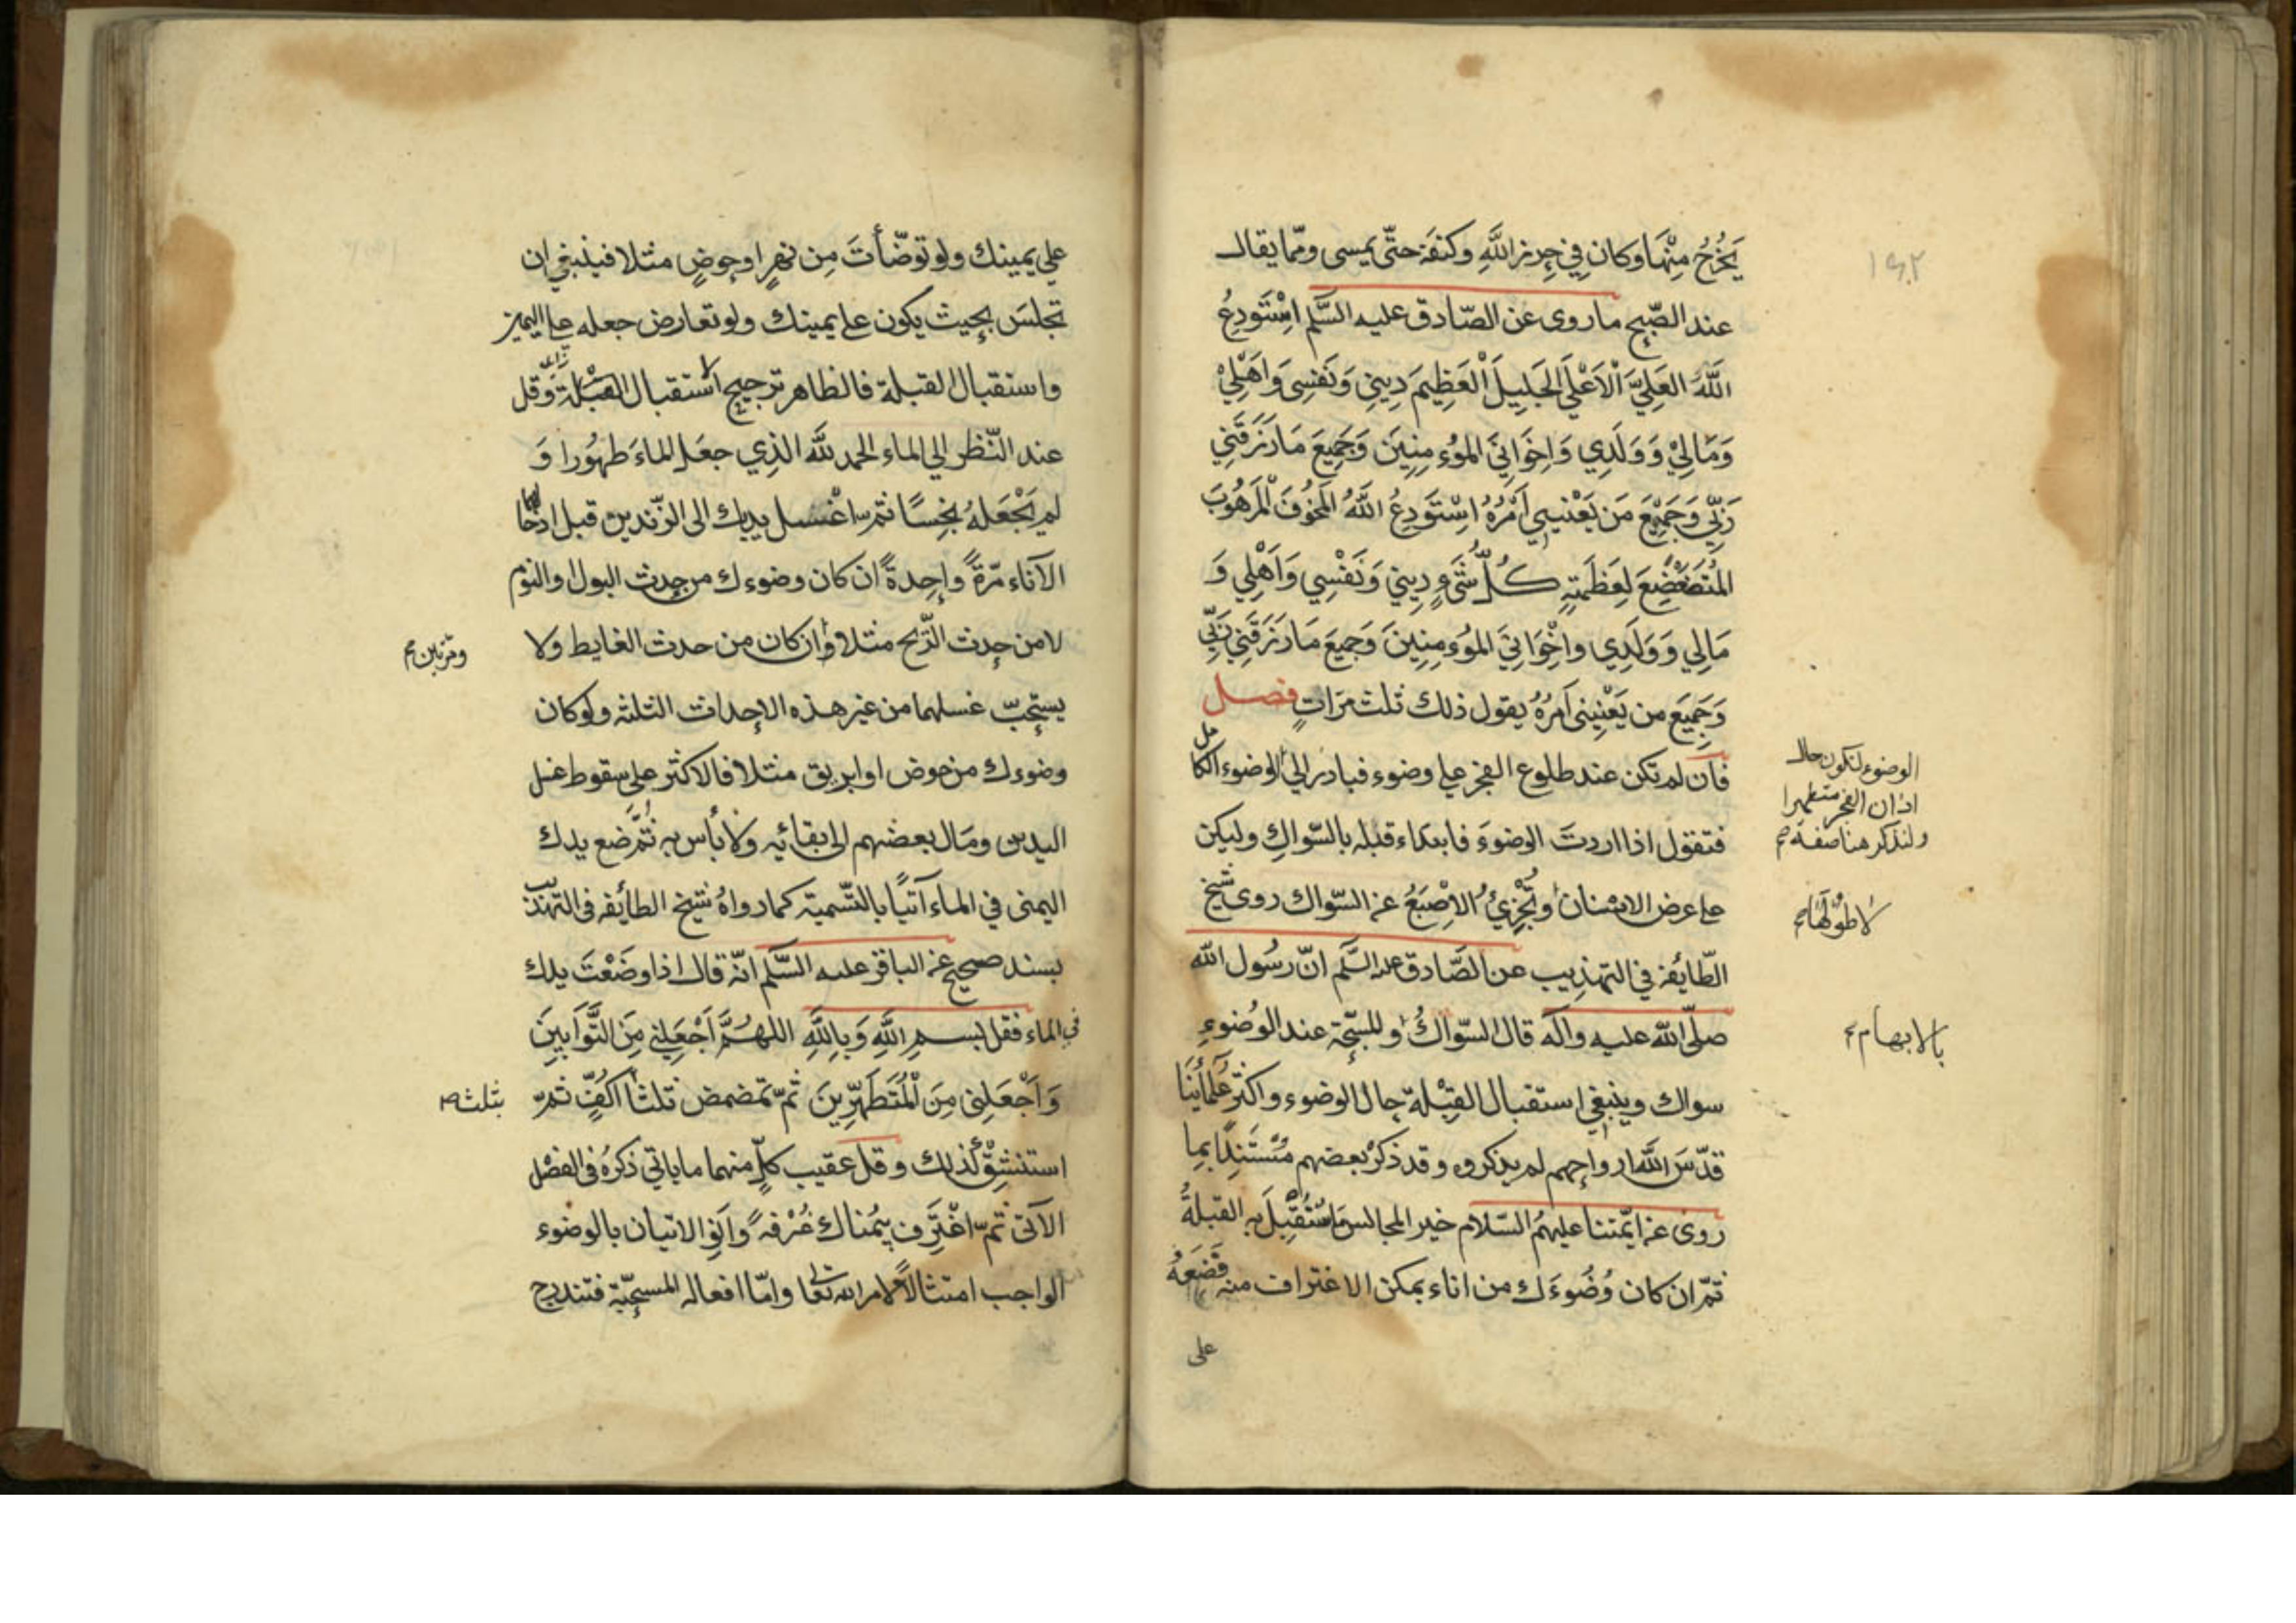 يَخْرُجُ مِنْهَا وكان فِي حِرزِ اللَّهِ وكنفَه حتّى يمسى وممّا يقال
عند الصّبح ما روى عن الصّادق عليه السَّلم اَسْتَودِعُ
اللَّهَ العَلِيَّ الْاَعْلَى الجَلِيلَ الْعَظِيمَ دِينِي وَنَفسِى وَاَهْلِيْ
وَمَالِيْ وَوَلَدِي وَاِخوَانِيَ المُؤمِنِينَ وَجَمِيعَ مَارَزَقَنِي
رَبِّي وَجَمِيْعَ مَن يَعْنِينِي اَمْرُهُ اَسْتَودِعُ اللَّهَ المَخُوفَ الْمَرهُوبَ
المُتَضَعْضِعَ لِعَظَمَتِهِ كُلُّ شَيءٍ دِينِي وَنَفْسِي وَاَهْلِي وَ
مَالِي وَوَلَدِي واِخْوَانِيَ المُؤمِنِينَ وَجَمِيعَ مَارَزَقَنِي رَبِّي
وَجَمِيعَ من يَعْنِينِى اَمرُهُ يقول ذلك ثلث مَرّاتٍ فصل
فان لم تكن عند طلوع الفجر على وضوء فبادر الى الوضوء الكامل
فتقول اذا اردتَ الوضوءَ فابداء قبله بالسّواكِ وليكن
على عرض الاسنان وتُجْزِيُ الاِصْبَعُ عن السّواك روى شيخ
الطّايفه في التهذيب عن الصّادق عليه السَّلم انّ رسُول الله
صلّى الله عليه واله قال السّواكُ والمسبّحة عند الوُضوءِ
سواك وينبغى استقبال القِبْلة حال الوضوء واكثر عُلمائنَا
قدّسَ اللَّه ارواحهم لم يذكروه وقد ذكرَ بعضهم مُسْتَنِدًا بِما
روى عن ائمّتنا عليهمُ السّلام خير المجالس مَا اسْتُقْبِلَ به القبلةُ
ثمّ ان كان وُضُوءَك من اناء يمكن الاغتراف منه فَضَعهُ
على
الوضوء لتكون حال
اذان الفجر متطهرا
ولنذكر هنا صفته صح
لا طولها صح
بالابهام صح
على يمينك ولو توضّأتَ مِن نهرٍ او حوضٍ مثلا فينبغى ان
تجلسَ بحيث يكون على يمينك ولو تعارض جعله على اليمين
واستقبال القبلة فالظاهر ترجيح استقبال القبلة وَقل
عند النّظر الى الماء الحمد للَّه الذِي جعَل الماءَ طهُورا وَ
لم يَجْعَلهُ نجِسًا ثم اغسل يديك الى الزّندين قبل ادخالها
الآناء مرّةً واحِدةً ان كان وضوءك من حدث البول او النوم
لا من حدث الرّيح مثلا وان كان من حدث الغايط ولا
يستحبّ غسلهما من غير هذه الاحداث الثلثه ولو كان
وضوءك من حوض او ابريق مثلا فالاكثر على سقوط غسل
اليدين ومَال بعضهم الى بقائِه ولا بأس به ثُمَّ ضع يدك
اليمنى في الماء آتيًا بالتّسمية كما رواهُ شيخ الطائفه فى التهذيب
بسند صحيح عن الباقر عليه السَّلم انّه قال اذا وضَعْتَ يدك
في الماء فقل بسم اللَّهِ وَبِاللَّهِ اللهُمَّ اَجْعَلنِي مِنَ التَّوَّابِينَ
وَاَجْعَلِنى مِنَ الْمُتَطَهِّرِينَ ثُمّ تمضمض ثلثًا اكُفٍّ ثمّ
استنشِقْ كذلك وقل عقيب كلٍّ منهما ما ياتى ذكرهُ فى الفصْل
الآتى ثمّ اغْتَرِف بِيُمناك غُرْفه وَانوِ الاتيان بالوضوء
الواجب امتثالاً لامر الله تعا وامّا افعاله المستحبّة فتندرج
ومرّتين صح
بثلث صح